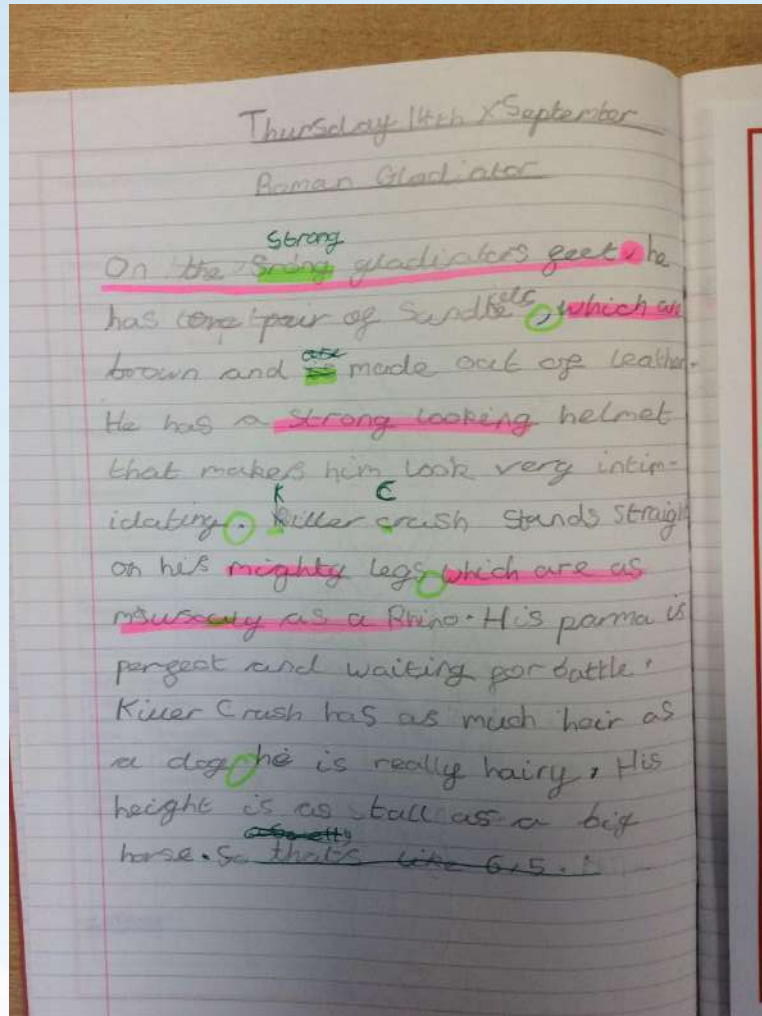 Thursday 14th September
Roman Gladiator
Strong
On the Srong gladiators feet, he
has one pair of Sandles, which are
brown and are made out of leather.
He has a strong looking helmet
that makes him look very intim-
idating. Killer Crush Stands straigh
on his mighty legs which are as
as a Rhino. His parma is
perfect and waiting for battle.
Killer Crush has as much hair as
a dog he is really hairy, His
height is as tall as a big
horse. So that's like 6,5.